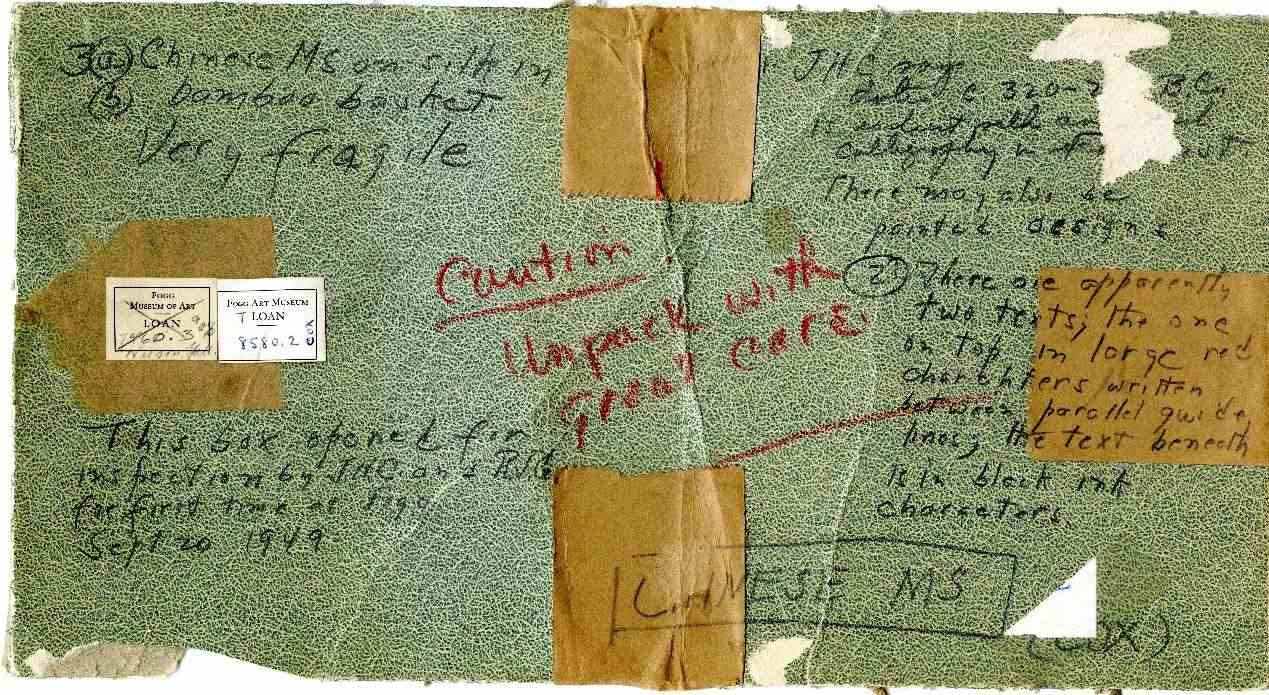 3 (a) Chinese MS on silk in
(b) bamboo basket
Very fragile
FOGG
MUSEUM OF ART
LOAN
1960.3
FOGG ART MUSEUM
T LOAN
8580.2
COX
This box opened for
inspection by JHC and
for first time at Fogg
Sept 20 1949
Caution
Unpack with
great care.
JHC says
date c 320-
B.C.
calligraphy in
There may also be
painted designs
(2) There are apparently
two texts; the one
on top in large red
charachters written
between parallel guide
lines; the text beneath
is in black ink
characters.
CHINESE MS
(COX)